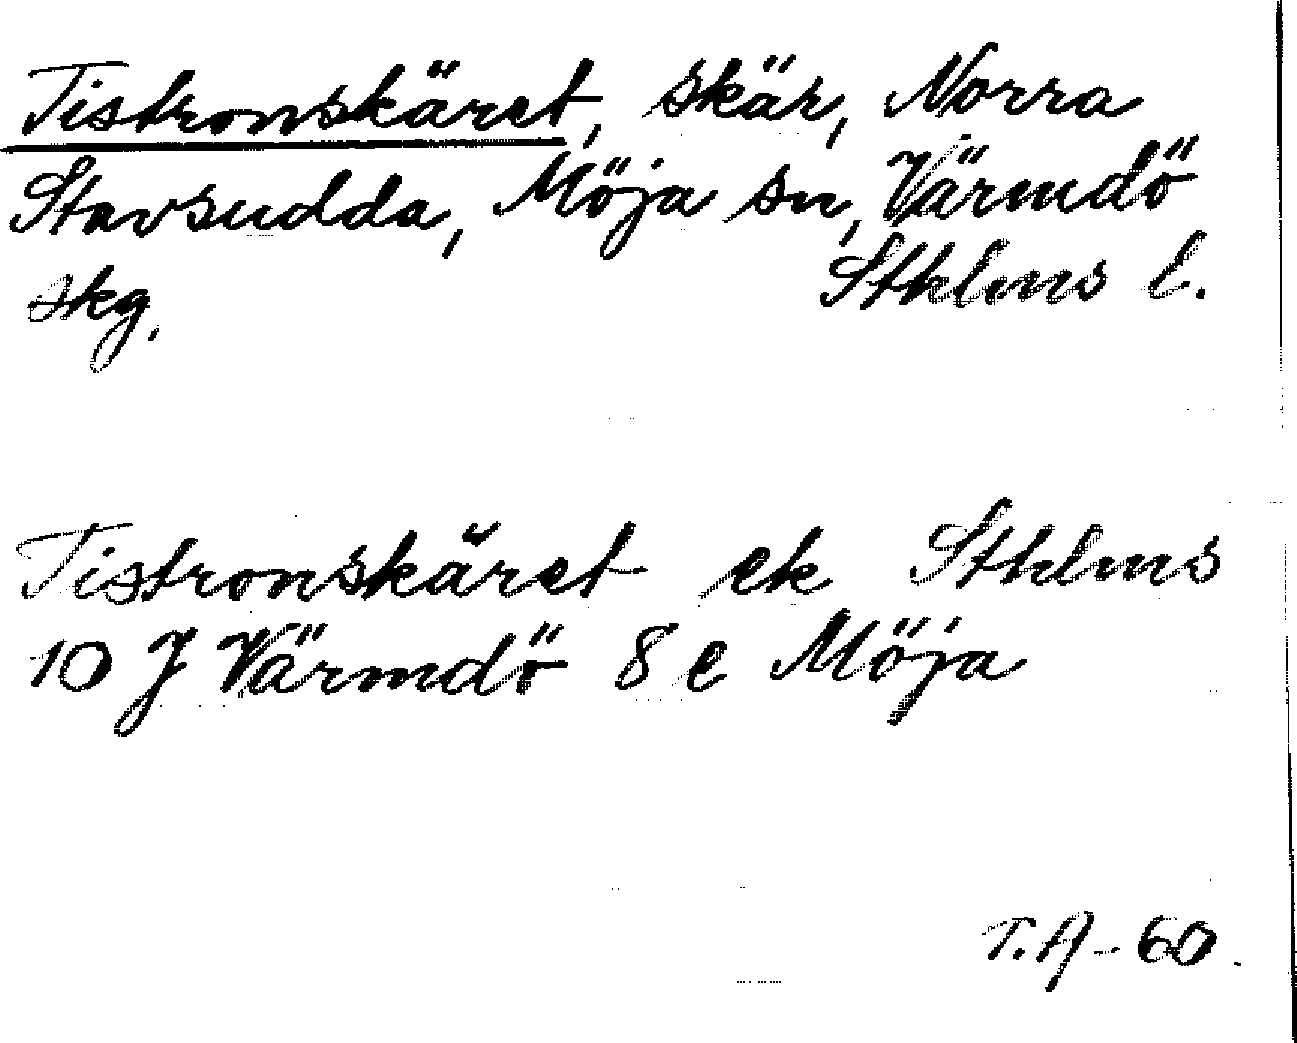 Tistronskäret, skär, Norra
Stavsudda, Möja sn, Värmdö
skg. Sthlms l.
Tistronskäret ek Sthlms
10 J Värmdö 8 e Möja
T.A-60.